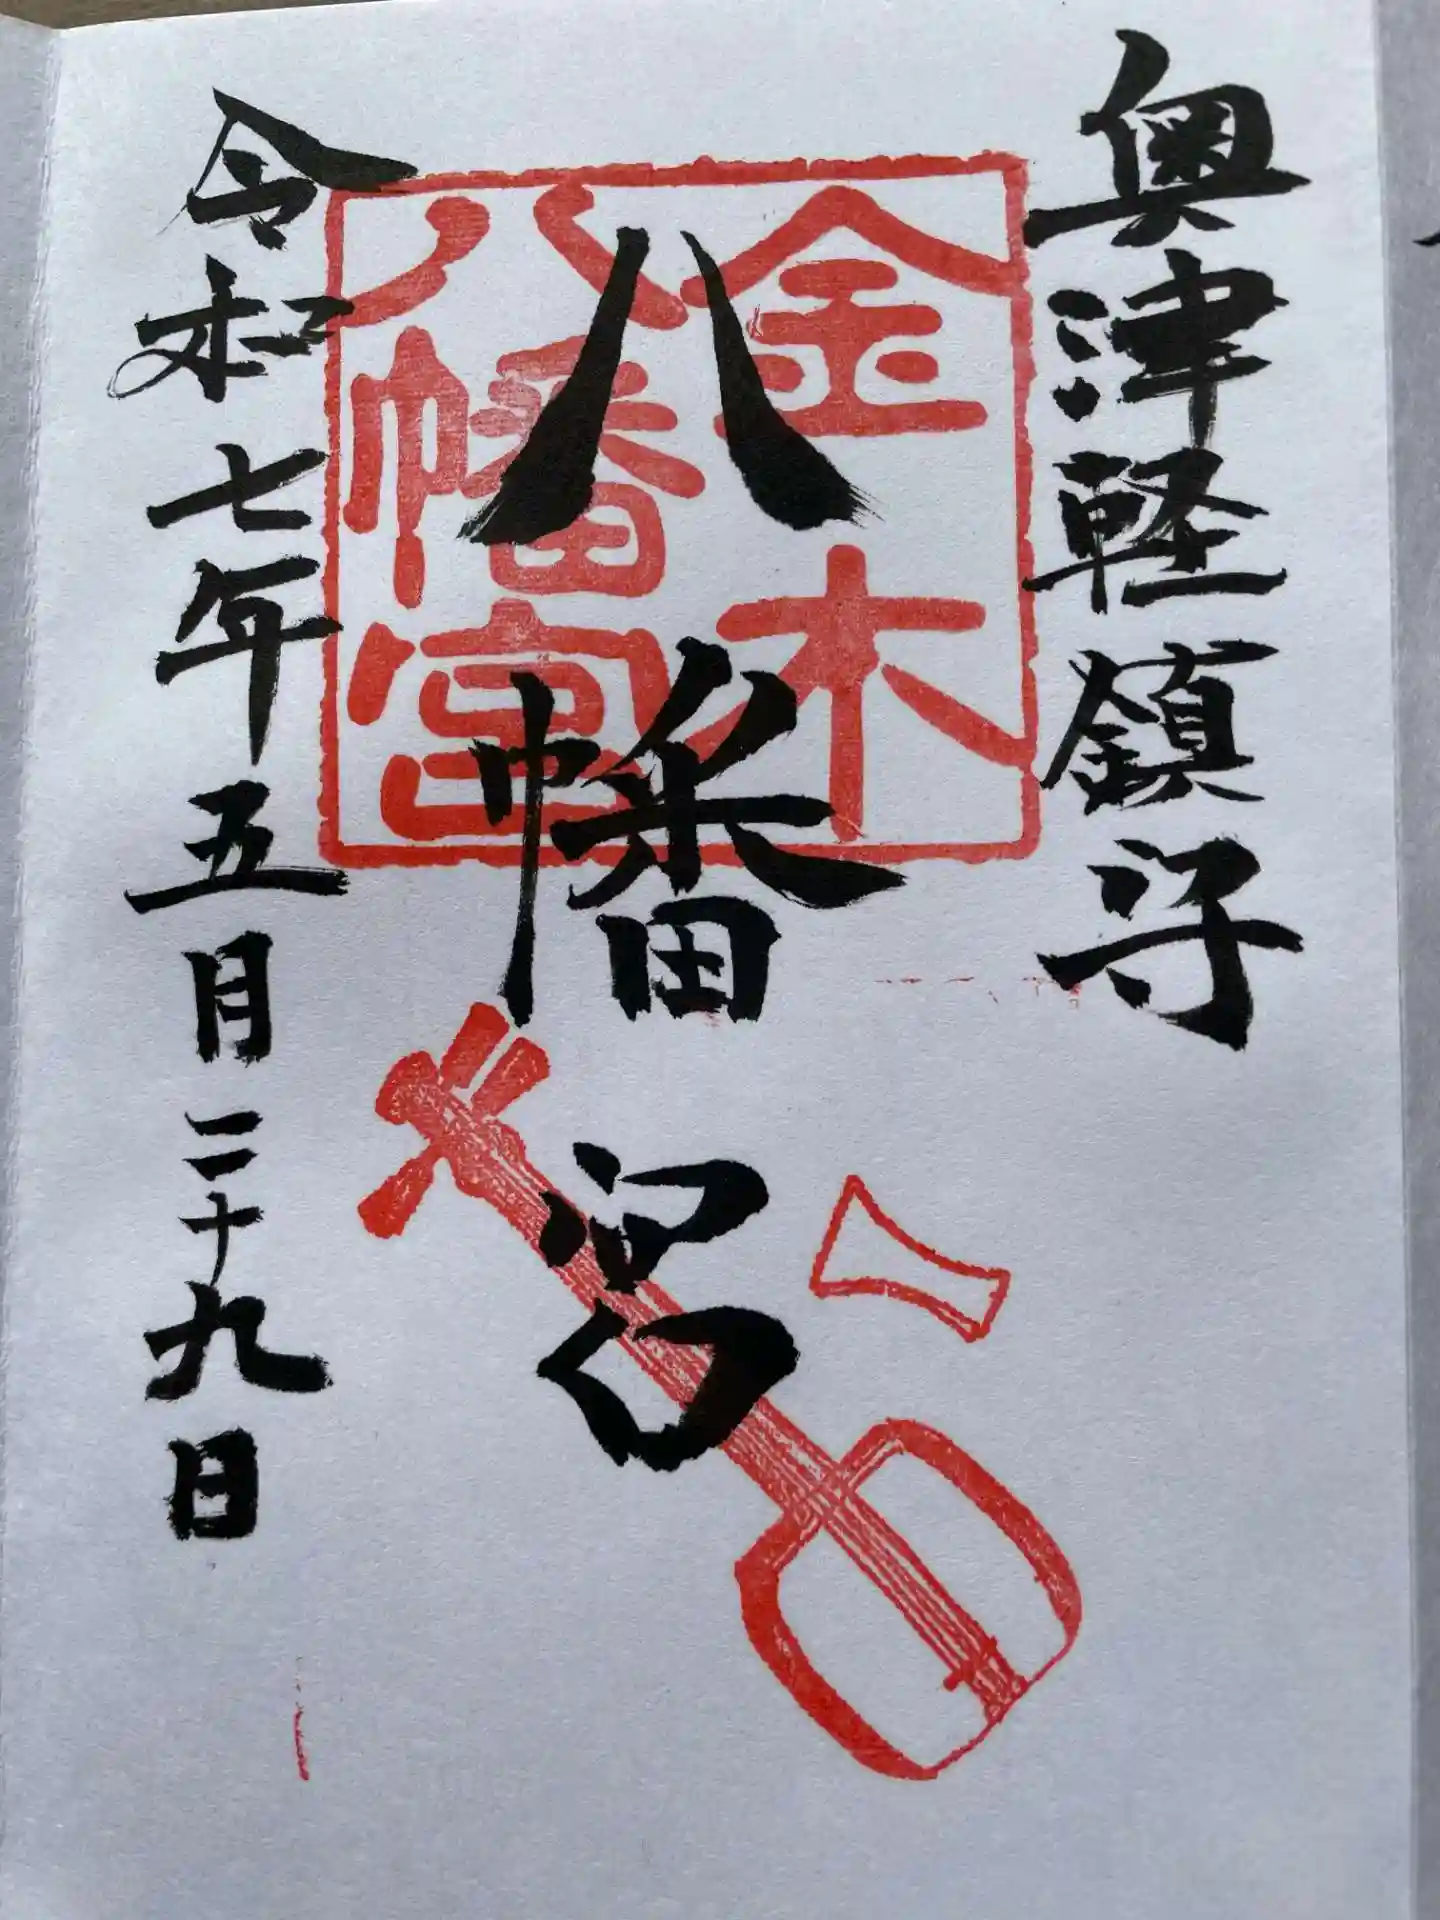 奥津軽鎮守
八幡宮
令和七年五月二十九日
金木
八幡宮